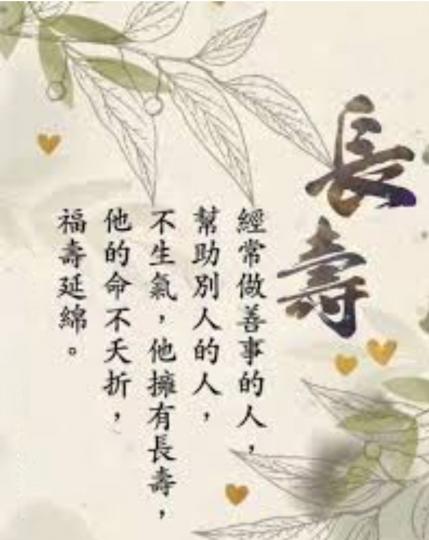 長壽
經常做善事的人，
幫助別人的人，
不生氣，他擁有長壽，
他的命不夭折，
福壽延綿。